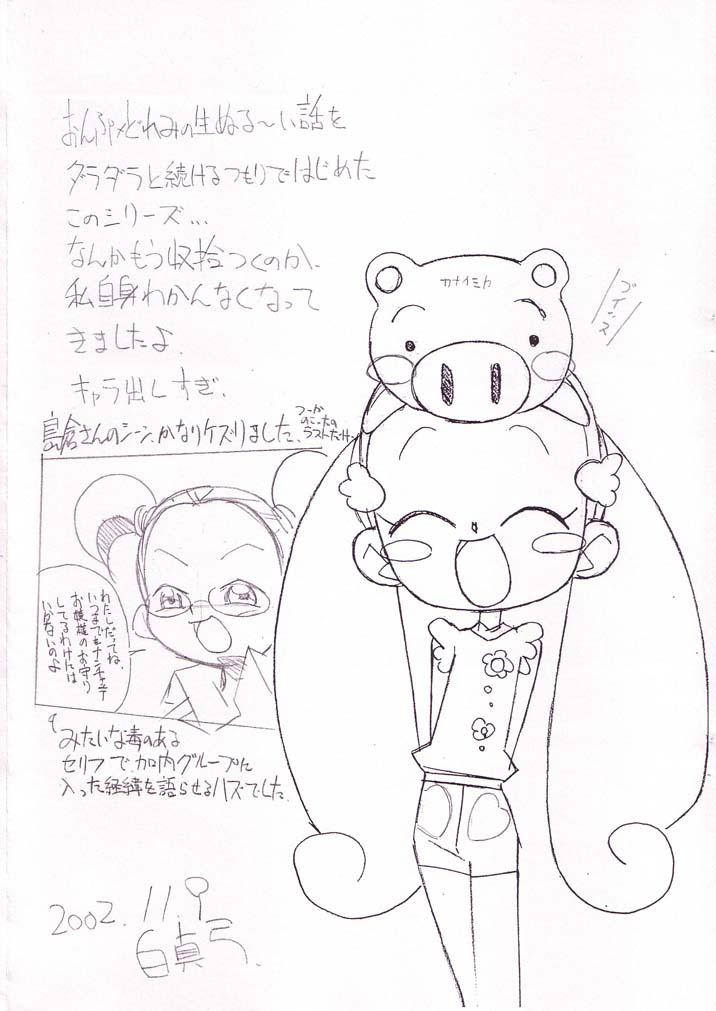 おんぷ×どれみの生ぬる〜い話を
ダラダラと続けるつもりではじめた
このシリーズ…
なんかもう収拾つくのか、
私自身わかんなくなって
きましたよ。
キャラ出しすぎ。
島倉さんのシーン、かなりケズりました。
つーか
のこったの
ラストだけ
カナイミカ
ブイッス
わたしだってね、
いつまでも
お嬢様のお守り
してるわけには
いかないのよ
みたいな毒のある
セリフで、加内グループに
入った経緯を語らせるハズでした。
2002. 11. 9
白真弓.